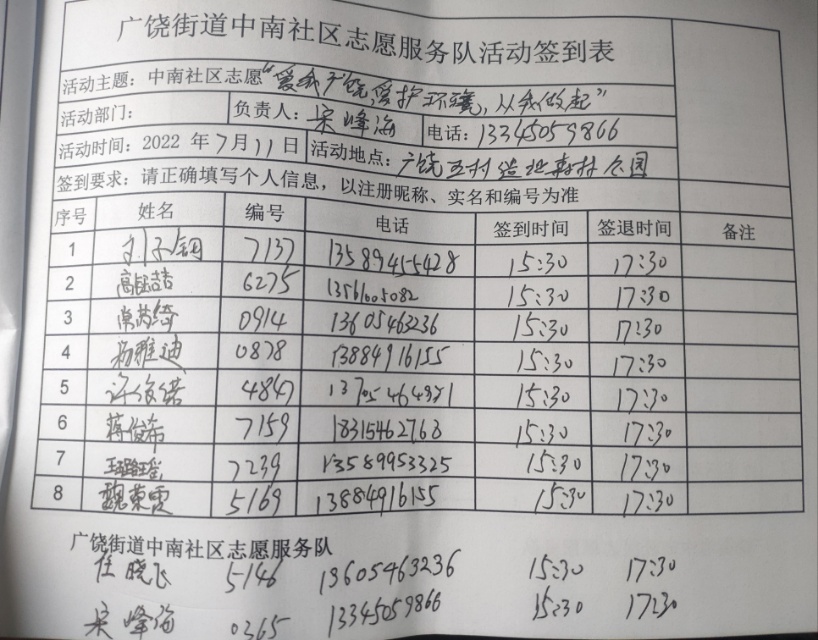 广饶街道中南社区志愿服务队活动签到表
活动主题：中南社区志愿“爱我广饶，爱护环境，从我做起”
活动部门： 负责人：宋峰海 电话：13345059866
活动时间：2022 年7月11日 活动地点：广饶 村造地森林公园
签到要求：请正确填写个人信息，以注册昵称、实名和编号为准
序号 姓名 编号 电话 签到时间 签退时间 备注
1 刘子钢 7137 13589415428 15:30 17:30
2 高 喆 6275 13561605082 15:30 17:30
3 常芮绮 0914 13605463236 15:30 17:30
4 杨雅迪 0878 13884916155 15:30 17:30
5 许俊诺 4847 13705464921 15:30 17:30
6 蒋俊希 7159 18315462768 15:30 17:30
7 王璐瑶 7239 13589953325 15:30 17:30
8 魏荣霞 5169 13884916155 15:30 17:30
广饶街道中南社区志愿服务队
任晓飞 5146 13605463236 15:30 17:30
宋峰海 0365 13345059866 15:30 17:30